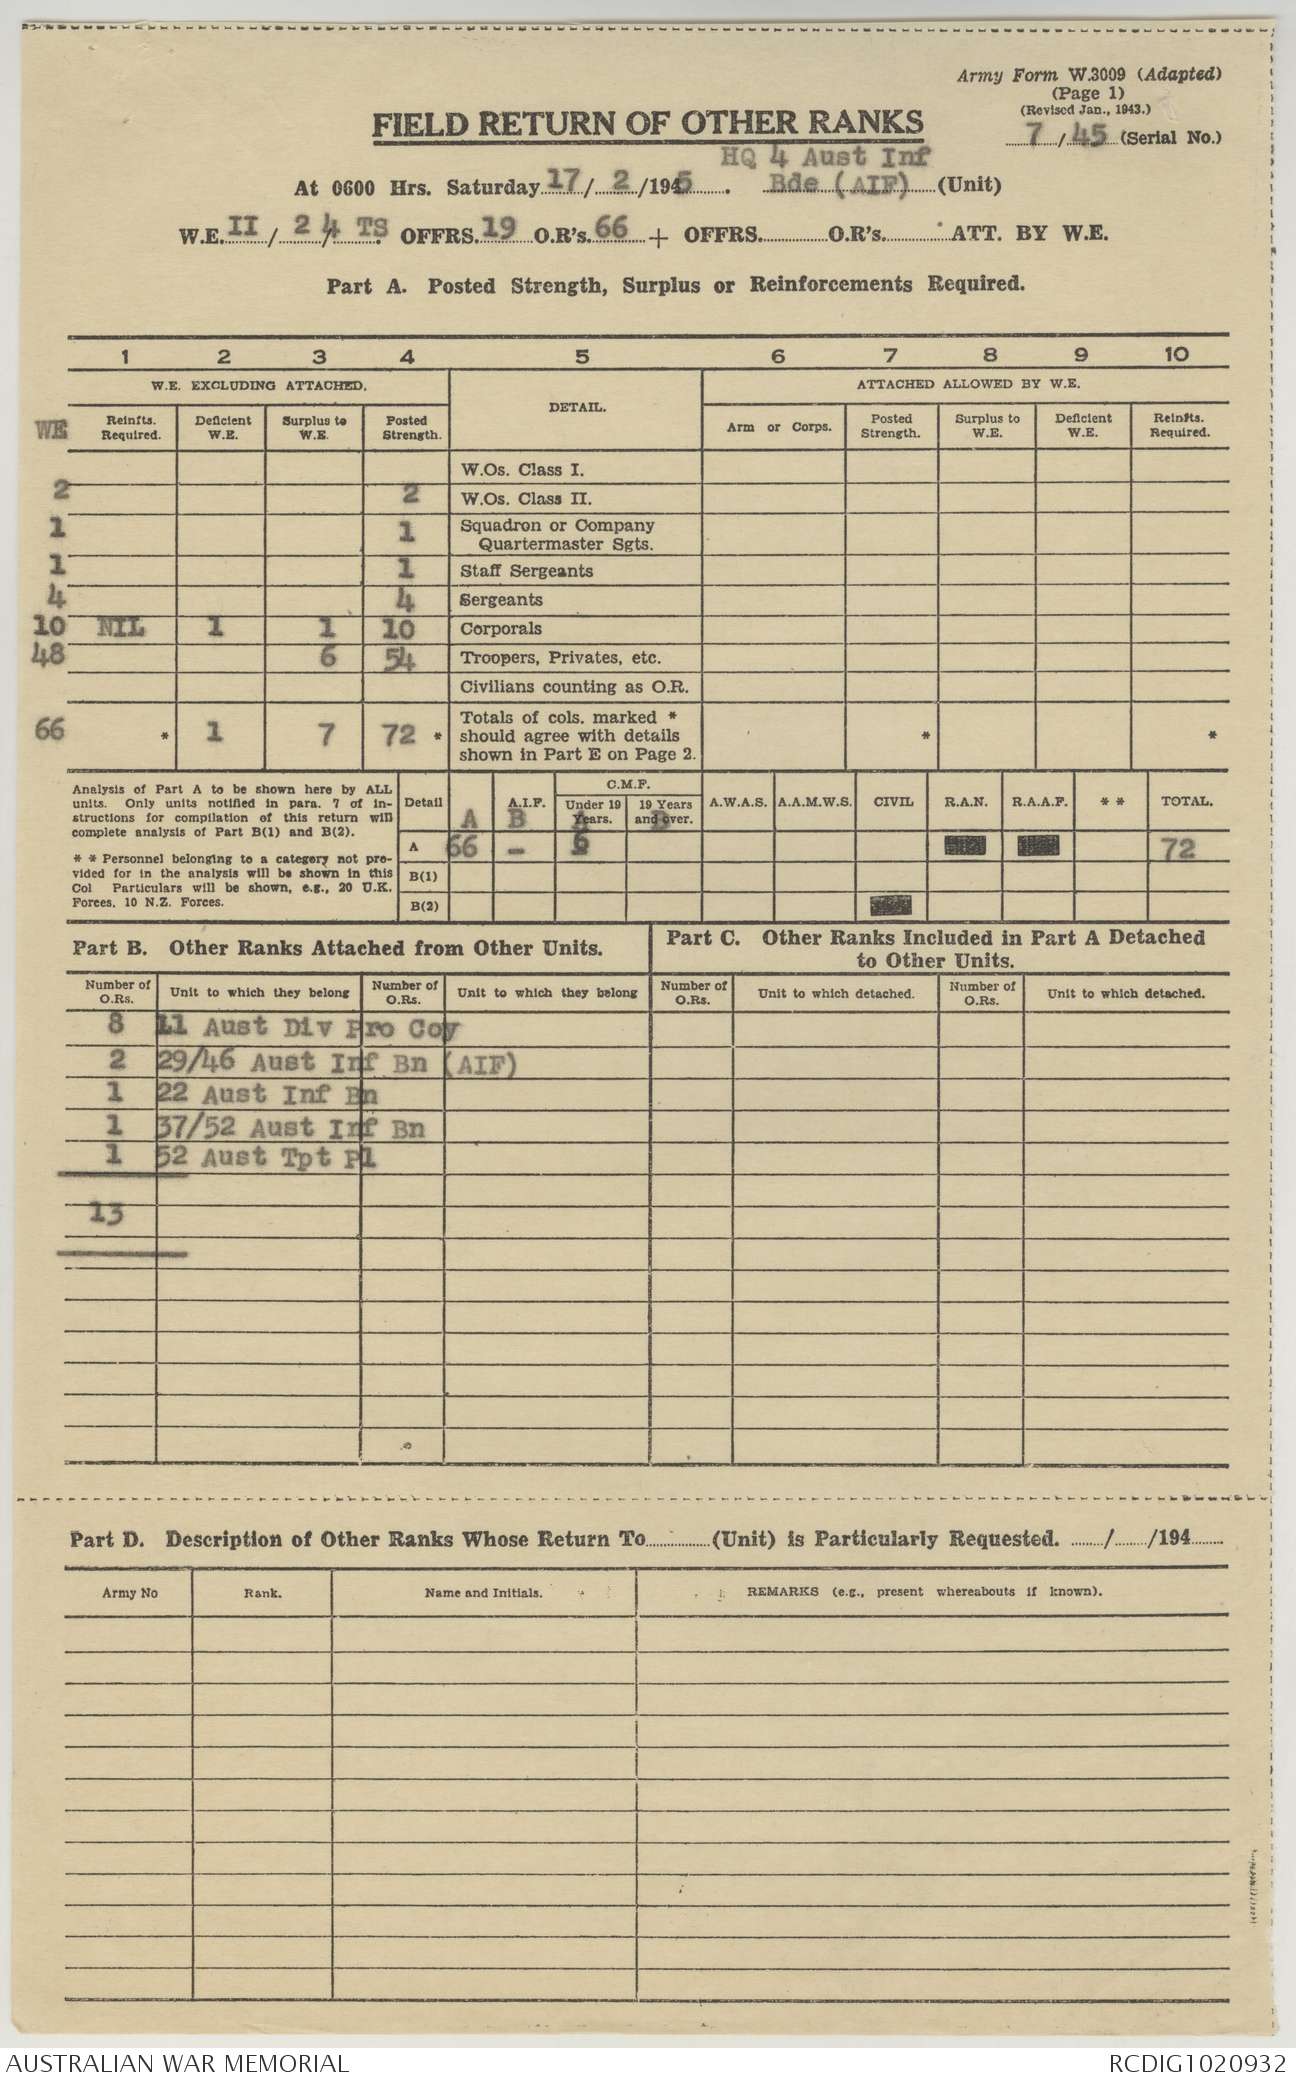 Army Form W.3009 (Adapted)
(Page 1)
(Revised Jan., 1943.)
7/45 (Serial No.)
FIELD RETURN OF OTHER RANKS
HQ 4 Aust Inf
At 0600 Hrs. Saturday 17/2/1945. Bde (AIF) (Unit)
W.E. II/2 4 TS OFFRS. 19 O.R's. 66 + OFFRS. O.R's. ATT. BY W.E.
Part A. Posted Strength, Surplus or Reinforcements Required.
1 2 3 4 5 6 7 8 9 10
W.E. EXCLUDING ATTACHED. DETAIL. ATTACHED ALLOWED BY W.E.
WE Reinfts. Required. Deficient W.E. Surplus to W.E. Posted Strength. Arm or Corps. Posted Strength. Surplus to W.E. Deficient W.E. Reinfts. Required.
W.Os. Class I.
2 2 W.Os. Class II.
1 1 Squadron or Company Quartermaster Sgts.
1 1 Staff Sergeants
4 4 Sergeants
10 NIL 1 1 10 Corporals
48 6 54 Troopers, Privates, etc.
Civilians counting as O.R.
66 * 1 7 72 * Totals of cols. marked * should agree with details shown in Part E on Page 2. * *
Analysis of Part A to be shown here by ALL
units. Only units notified in para. 7 of in-
structions for compilation of this return will
complete analysis of Part B(1) and B(2).
* * Personnel belonging to a category not pro-
vided for in the analysis will be shown in this
Col Particulars will be shown, e.g., 20 U.K.
Forces, 10 N.Z. Forces.
Detail A.I.F. C.M.F. Under 19 Years. 19 Years and over. A.W.A.S. A.A.M.W.S. CIVIL R.A.N. R.A.A.F. * * TOTAL.
A B A B
A 66 - 6 72
B(1)
B(2)
Part B. Other Ranks Attached from Other Units.
Part C. Other Ranks Included in Part A Detached
to Other Units.
Number of O.Rs. Unit to which they belong Number of O.Rs. Unit to which they belong Number of O.Rs. Unit to which detached. Number of O.Rs. Unit to which detached.
8 11 Aust Div Pro Coy
2 29/46 Aust Inf Bn (AIF)
1 22 Aust Inf Bn
1 37/52 Aust Inf Bn
1 52 Aust Tpt Pl
13
Part D. Description of Other Ranks Whose Return To (Unit) is Particularly Requested. / /194
Army No Rank. Name and Initials. REMARKS (e.g., present whereabouts if known).
AUSTRALIAN WAR MEMORIAL RCDIG1020932